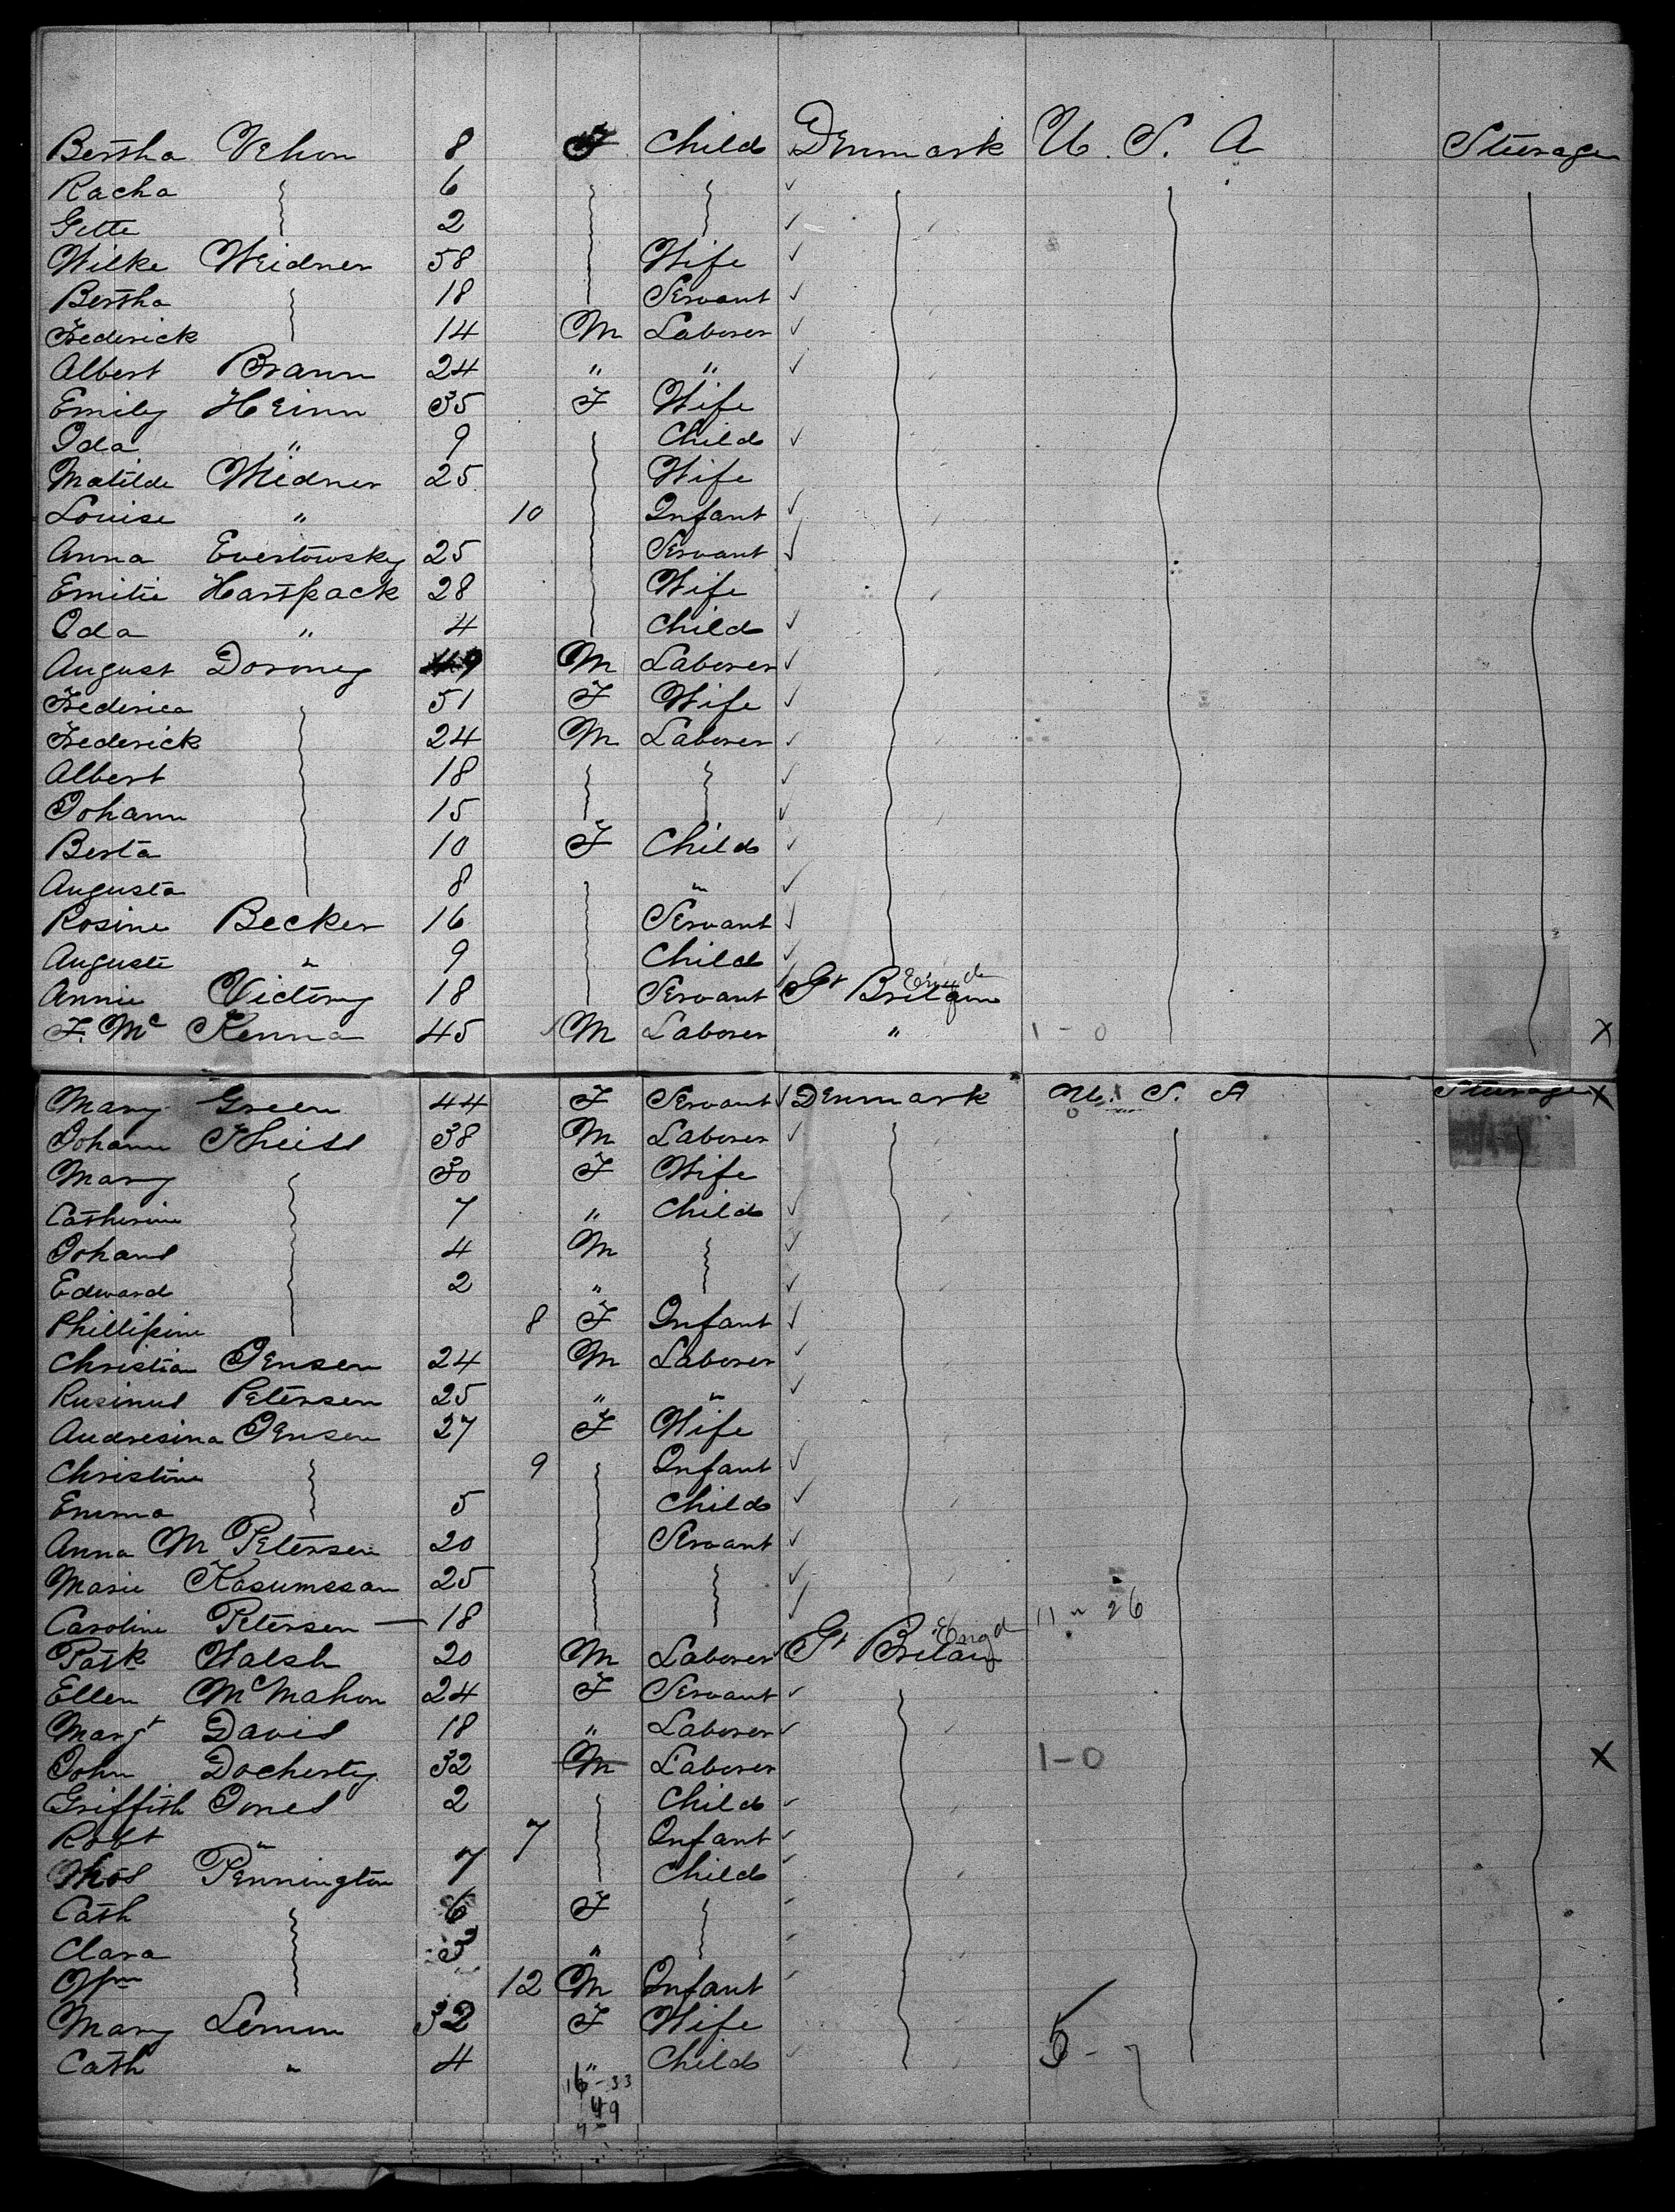 Bertha Vehon 8 F Child Denmark U. S. A Steerage
Racha 6
Gette 2
Wilke Weidner 58 Wife
Bertha 18 Servant
Frederick 14 M Laborer
Albert Braun 24 " "
Emily Heinn 35 F Wife
Ida " 9 Child
Matilde Weidner 25 Wife
Louise " 10 Infant
Anna Evertowsky 25 Servant
Emilie Hartpack 28 Wife
Ida " 4 Child
August Dorney 49 M Laborer
Frederica 51 F Wife
Frederick 24 M Laborer
Albert 18
Johann 15
Berta 10 F Child
Augusta 8 "
Rosine Becker 16 Servant
Auguste " 9 Child
Annie Victory 18 Servant Gt Britain Engd
F. Mc Kenna 45 M Laborer " 1-0 X
Mary Green 44 F Servant Denmark U. S. A Steerage X
Johann Theiss 38 M Laborer
Mary 30 F Wife
Catherine 7 " Child
Johans 4 M
Edward 2 "
Phillipine 8 F Infant
Christian Jensen 24 M Laborer
Rusinus Petersen 25 " "
Andresina Jensen 27 F Wife
Christine 9 Infant
Emma 5 Child
Anna M Petersen 20 Servant
Marie Kasumssan 25
Caroline Petersen — 18 11 - 26
Patk Walsh 20 M Laborer Gt Britain Engd
Ellen McMahon 24 F Servant
Margt Davis 18 " Laborer
John Docherty 32 M Laborer 1-0 X
Griffith Jones 2 Child
Robt " 7 Infant
Thos Pennington 7 Child
Cath 6 F
Clara 3 "
Wm 12 M Infant
Mary Lemon 32 F Wife
Cath " 4 " Child 5 - 7
16-33
49